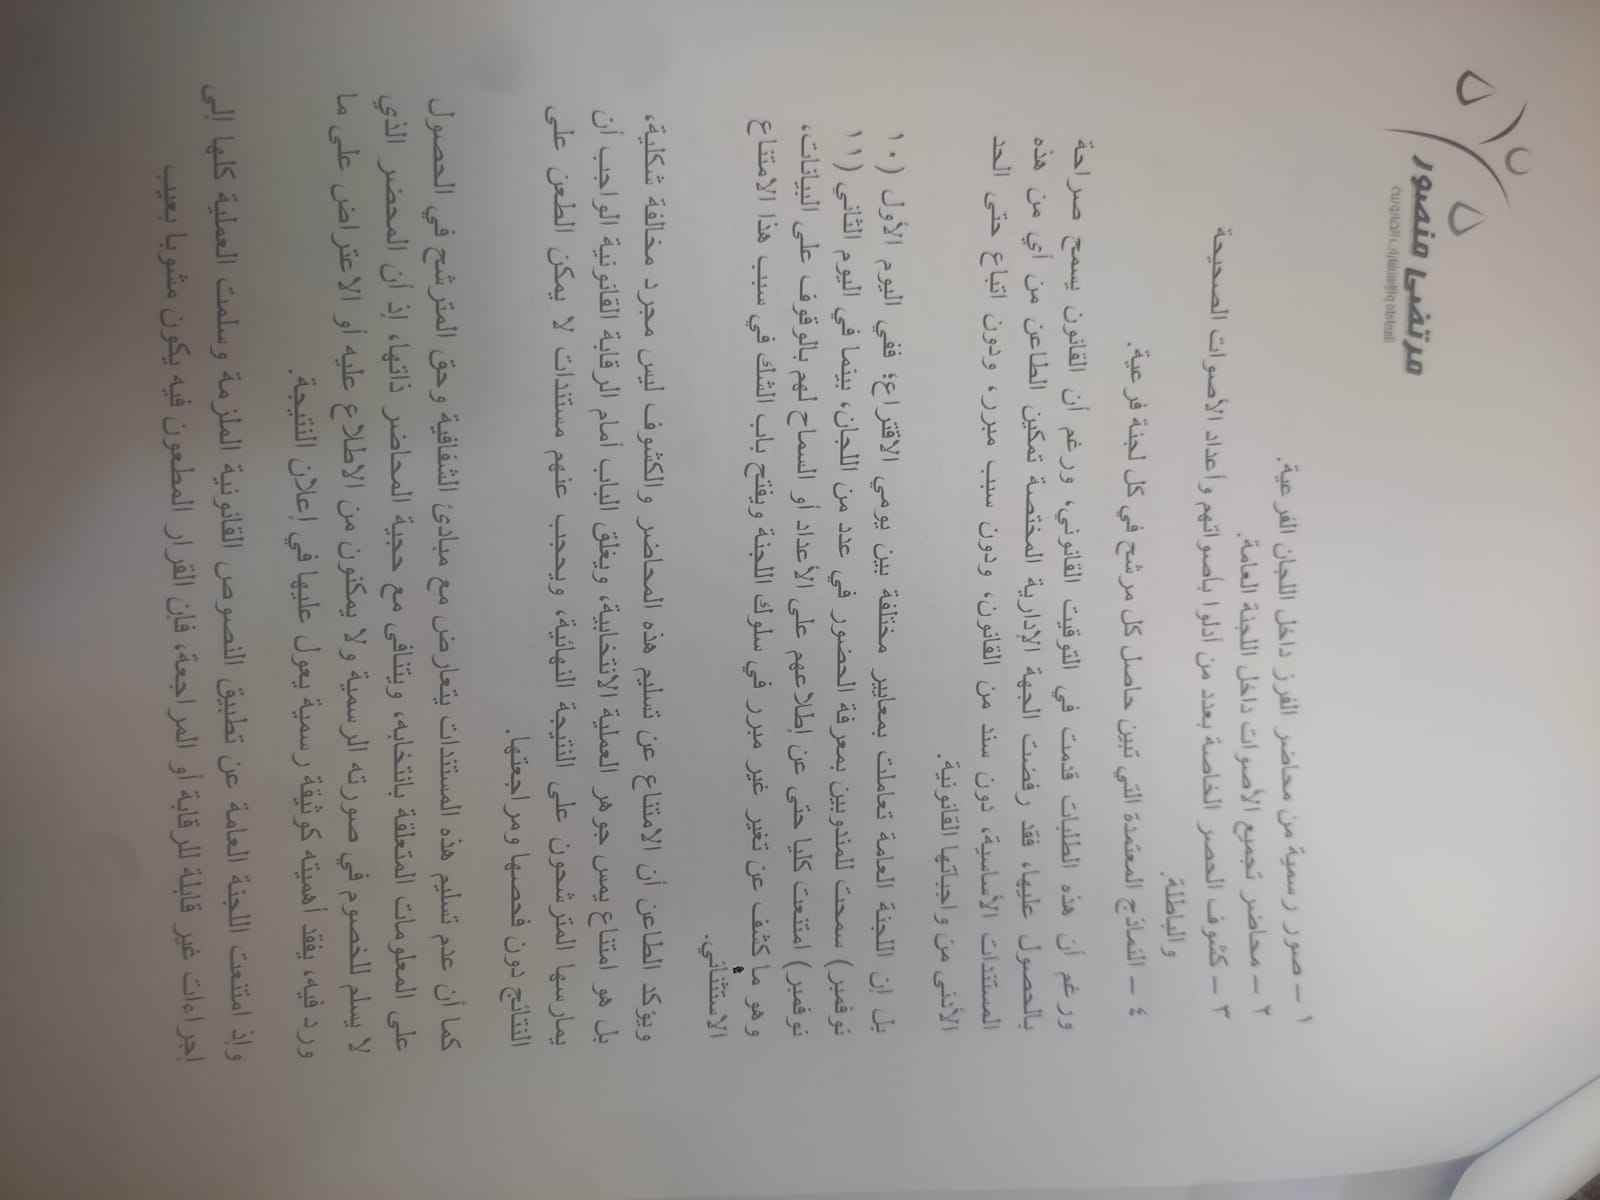 مرتضى منصور
للمحاماة والاستشارات القانونية
١ – صور رسمية من محاضر الفرز داخل اللجان الفرعية.
٢ – محاضر تجميع الأصوات داخل اللجنة العامة.
٣ – كشوف الحصر الخاصة بعدد من أدلوا بأصواتهم وأعداد الأصوات الصحيحة
والباطلة.
٤ – النماذج المعتمدة التي تبين حاصل كل مرشح في كل لجنة فرعية.
ورغم أن هذه الطلبات قدمت في التوقيت القانوني، ورغم أن القانون يسمح صراحة
بالحصول عليها، فقد رفضت الجهة الإدارية المختصة تمكين الطاعن من أي من هذه
المستندات الأساسية، دون سند من القانون، ودون سبب مبرر، ودون اتباع حتى الحد
الأدنى من واجباتها القانونية.
بل إن اللجنة العامة تعاملت بمعايير مختلفة بين يومي الاقتراع؛ ففي اليوم الأول (١٠
نوفمبر) سمحت للمندوبين بمعرفة الحضور في عدد من اللجان، بينما في اليوم الثاني (١١
نوفمبر) امتنعت كليا حتى عن إطلاعهم على الأعداد أو السماح لهم بالوقوف على البيانات،
وهو ما كشف عن تغير غير مبرر في سلوك اللجنة ويفتح باب الشك في سبب هذا الامتناع
الاستثنائي.
ويؤكد الطاعن أن الامتناع عن تسليم هذه المحاضر والكشوف ليس مجرد مخالفة شكلية،
بل هو امتناع يمس جوهر العملية الانتخابية، ويغلق الباب أمام الرقابة القانونية الواجب أن
يمارسها المترشحون على النتيجة النهائية، ويحجب عنهم مستندات لا يمكن الطعن على
النتائج دون فحصها ومراجعتها.
كما أن عدم تسليم هذه المستندات يتعارض مع مبادئ الشفافية وحق المترشح في الحصول
على المعلومات المتعلقة بانتخابه، ويتنافى مع حجية المحاضر ذاتها، إذ أن المحضر الذي
لا يسلم للخصوم في صورته الرسمية ولا يمكنون من الاطلاع عليه أو الاعتراض على ما
ورد فيه، يفقد أهميته كوثيقة رسمية يعول عليها في إعلان النتيجة.
وإذ امتنعت اللجنة العامة عن تطبيق النصوص القانونية الملزمة وسلمت العملية كلها إلى
إجراءات غير قابلة للرقابة أو المراجعة، فإن القرار المطعون فيه يكون مشوبا بعيب